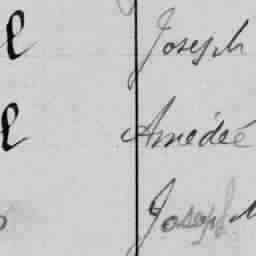 l Joseph
l Amédée
Joseph